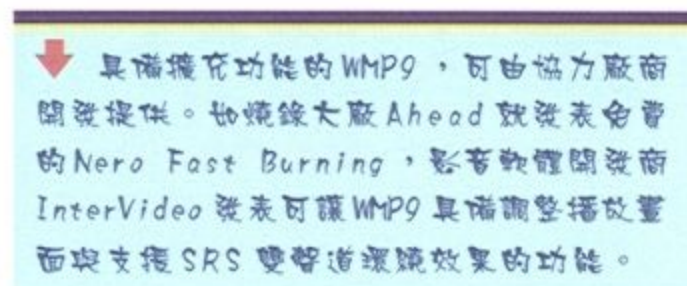 具備擴充功能的 WMP9 ，可由協力廠商
開發提供。如燒錄大廠 Ahead 就發表免費
的 Nero Fast Burning ，影音軟體開發商
InterVideo 發表可讓 WMP9 具備調整播放畫
面與支援 SRS 雙聲道環繞效果的功能。